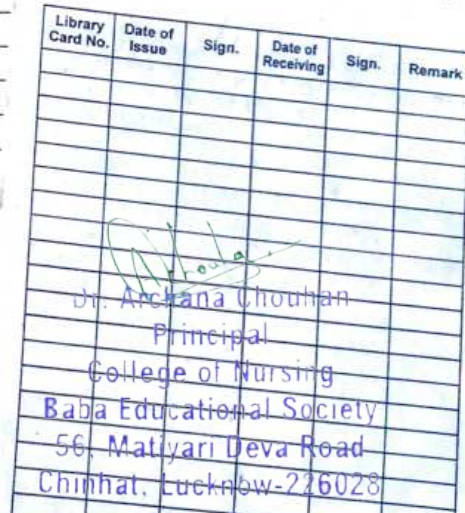 Library Card No. Date of Issue Sign. Date of Receiving Sign. Remark
Dr. Archana Chouhan
Principal
College of Nursing
Baba Educational Society
56, Matiyari Deva Road
Chinhat, Lucknow-226028